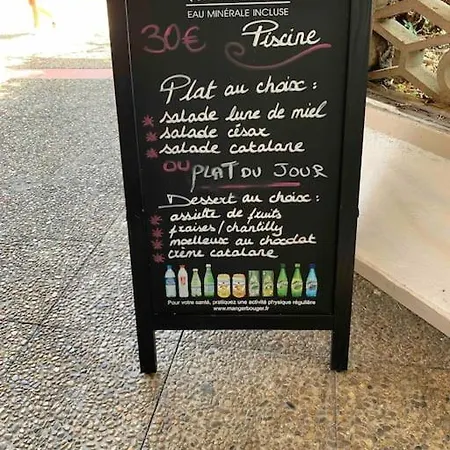 EAU MINÉRALE INCLUSE
30€ Piscine
Plat au choix :
salade lune de miel
salade césar
salade catalane
OU PLAT DU JOUR
Dessert au choix :
assiette de fruits
fraises/chantilly
moelleux au chocolat
crème catalane
Pour votre santé, pratiquez une activité physique régulière
www.mangerbouger.fr